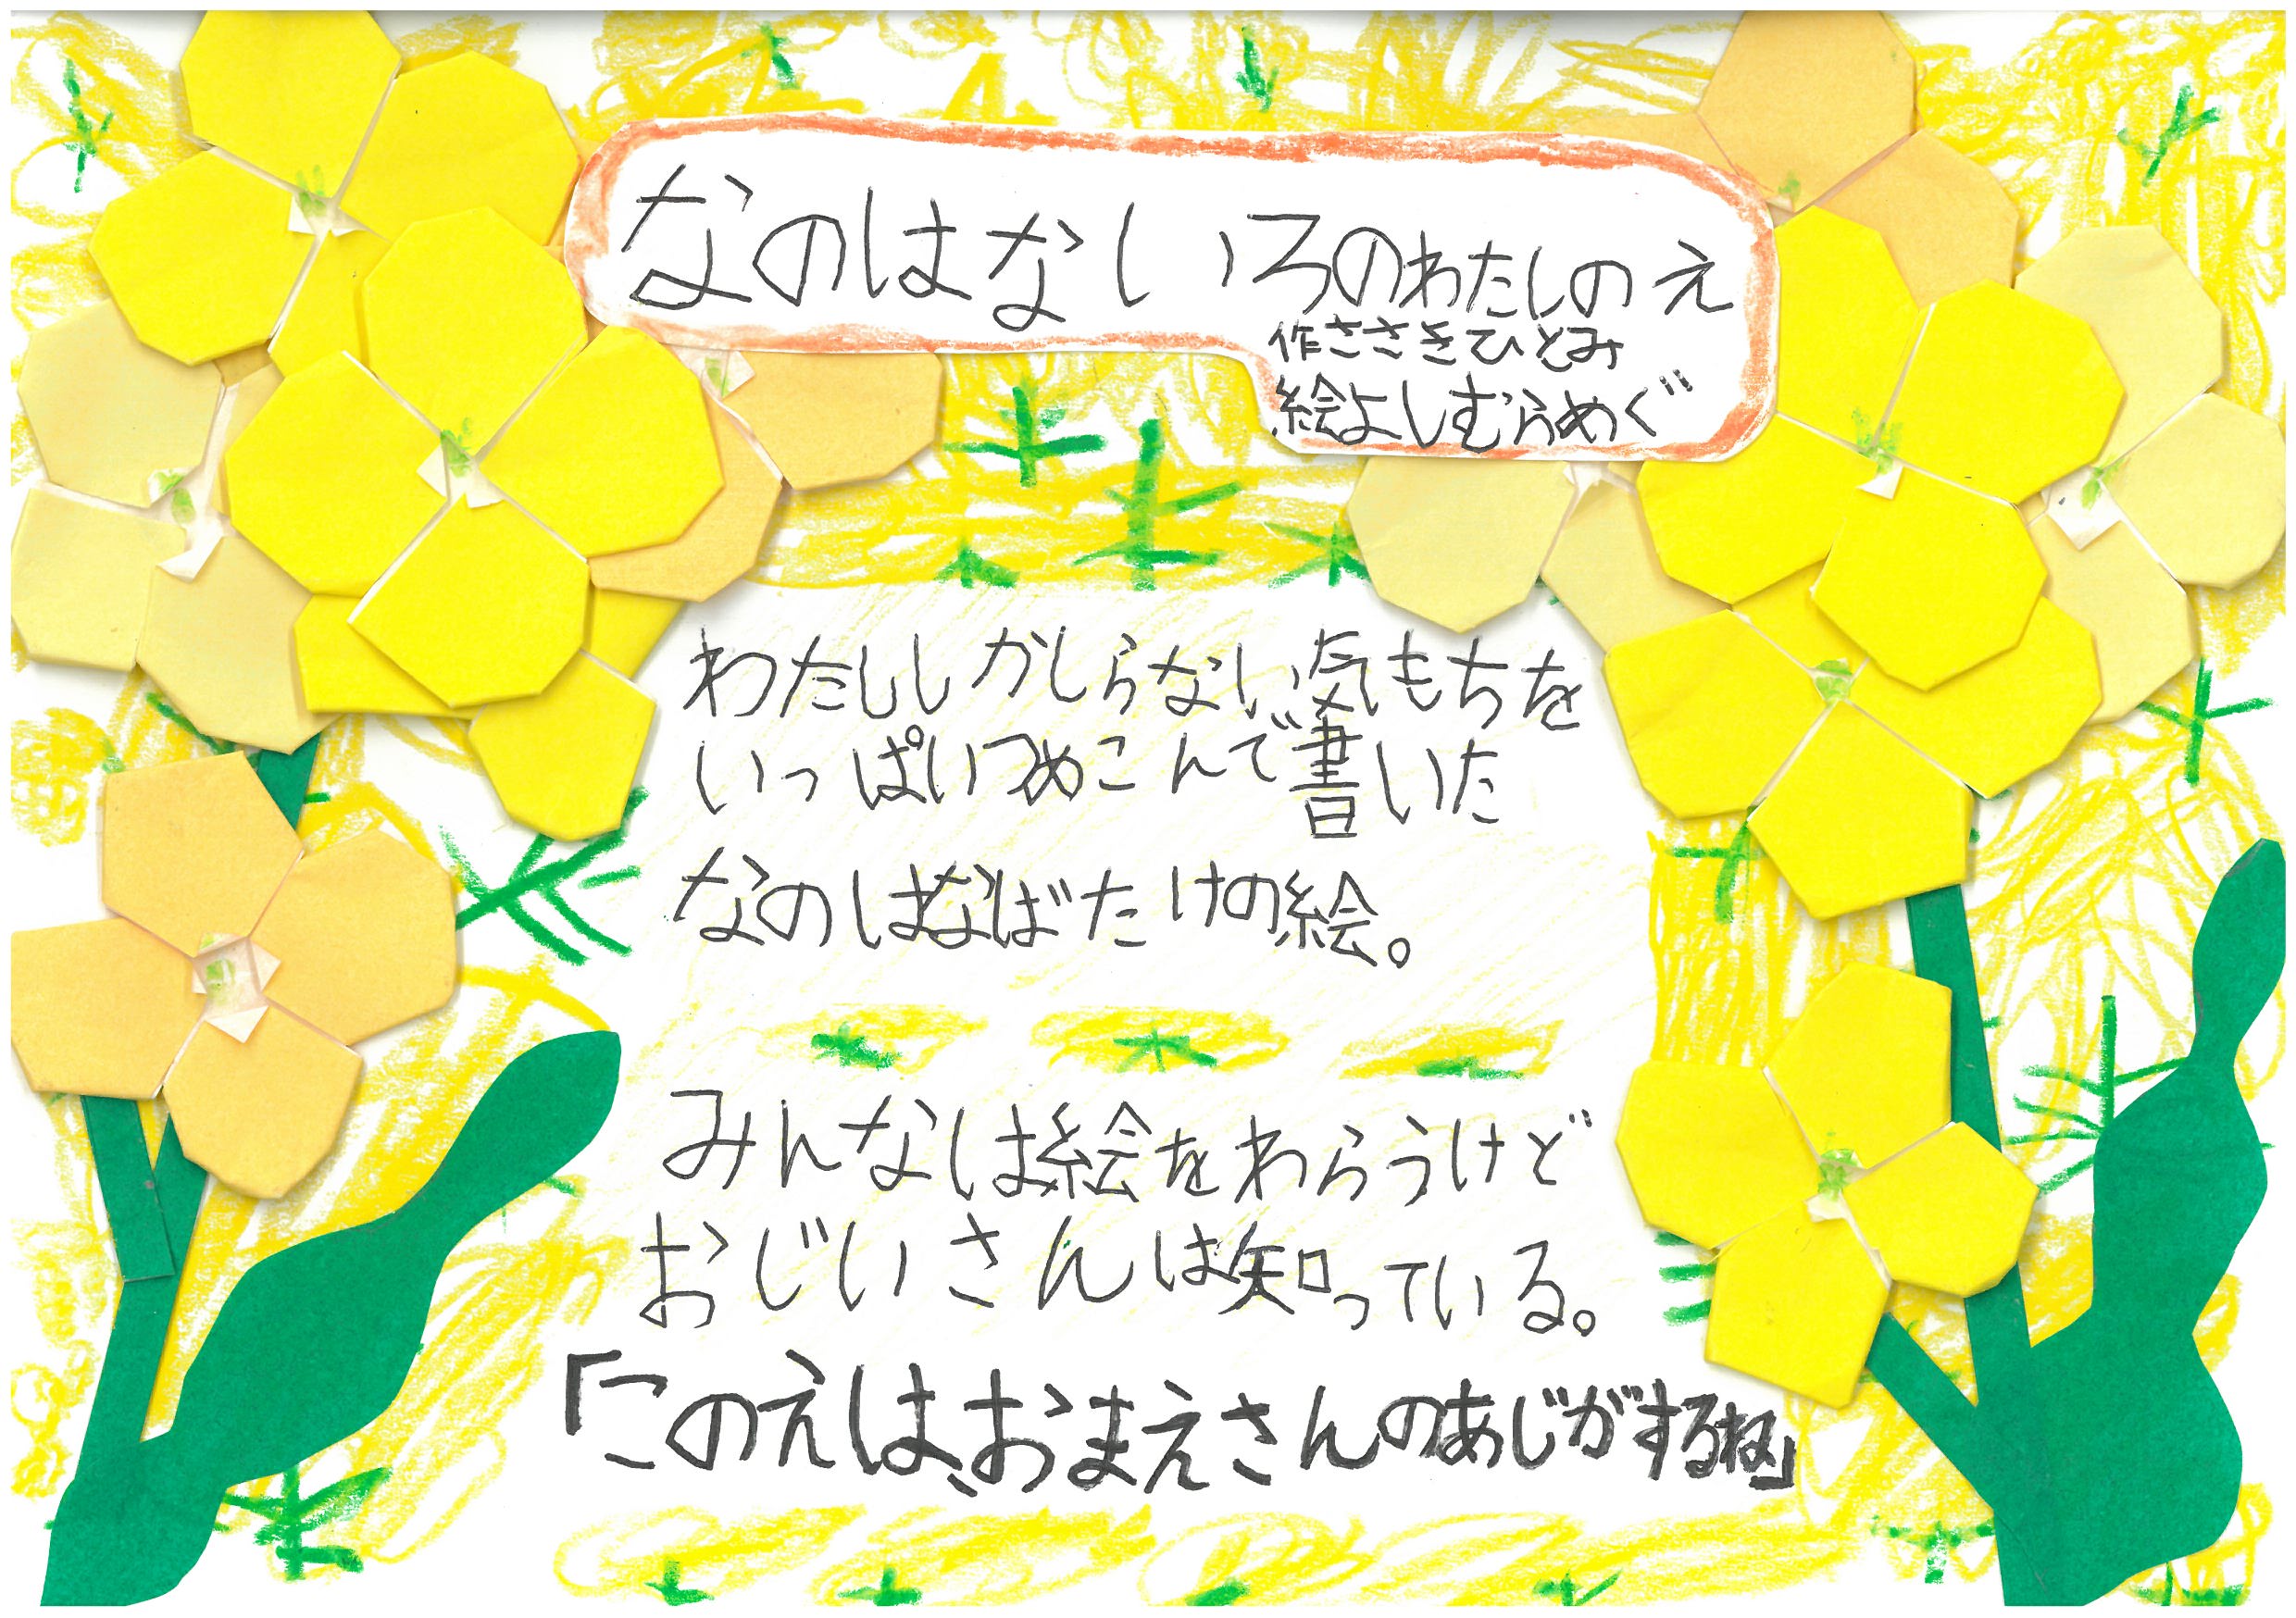 なのはないろのわたしのえ
作ささきひとみ
絵よしむらめぐ
わたししかしらない気もちを
いっぱいつめこんで書いた
なのはなばたけの絵。
みんなは絵をわらうけど
おじいさんは知っている。
「このえは、おまえさんのあじがするね」